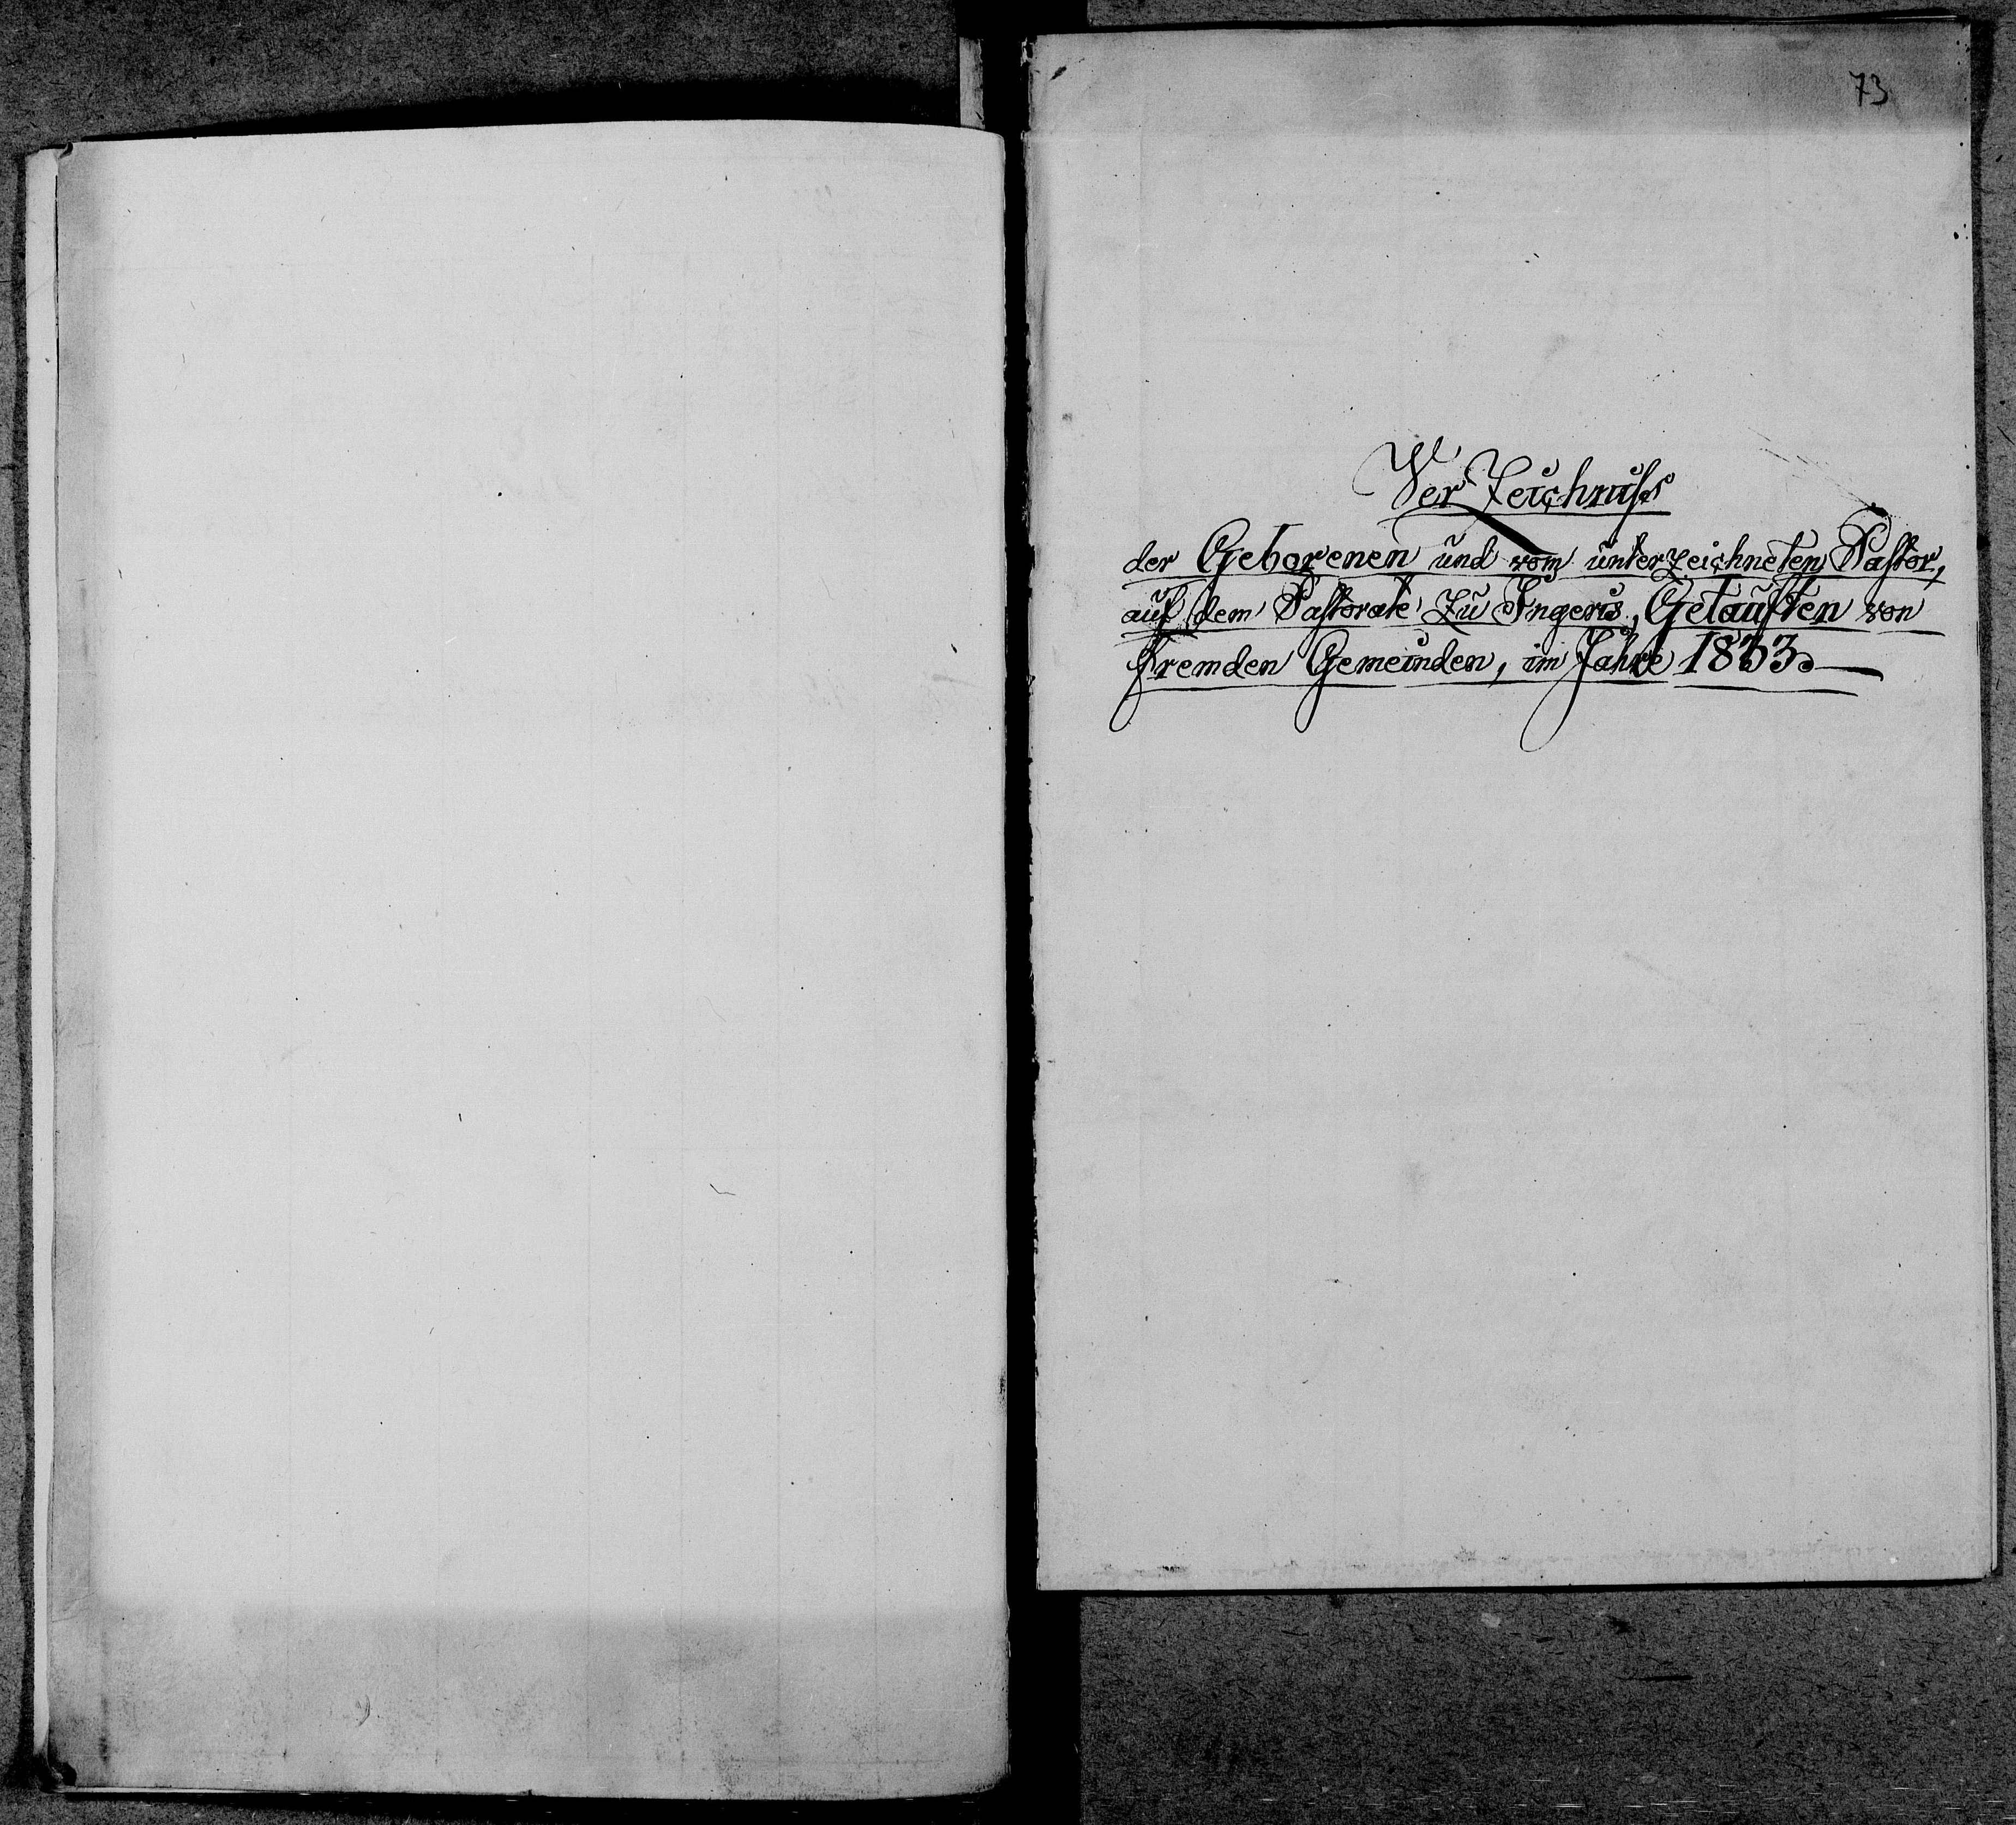 73
Verzeichniss
der Geborenen und vom unterzeichneten Pastor,
auf dem Pastorate zu Ingeris, Getauften von
fremden Gemeinden, im Jahre 1833.